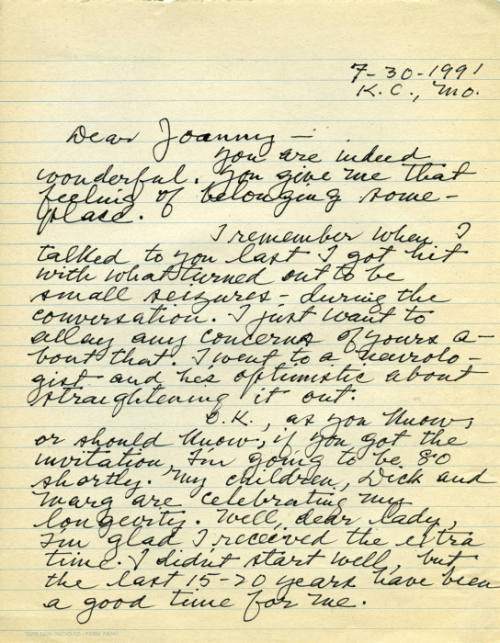 7-30-1991
K.C., Mo.
Dear Joanny —
You are indeed
wonderful. You give me that
feeling of belonging some-
place.
I remember when I
talked to you last I got hit
with what turned out to be
small seizures - during the
conversation. I just want to
allay any concerns of yours a-
bout that. I went to a neurolo-
gist and he's optimistic about
straightening it out.
O.K., as you know,
or should know, if you got the
invitation, I'm going to be 80
shortly. My children, Dick and
Marg are celebrating my
longevity. Well, dear lady,
I'm glad I received the extra
time. I didn't start well, but
the last 15-20 years have been
a good time for me.